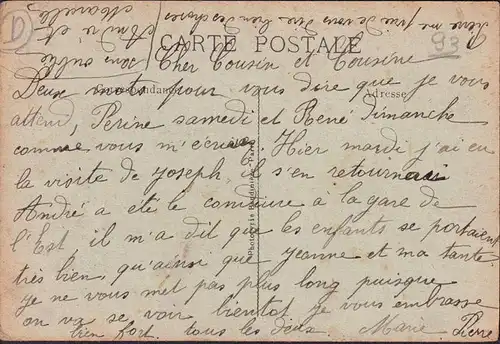 CARTE POSTALE
Correspondance
Adresse
D
93
Cher Cousin et Cousine
Deux mots pour vous dire que je vous
attend, Perine samedi et René Dimanche
comme vous m'écrivez. Hier mardi j'ai eu
la visite de Joseph, il s'en retournai
André a etè le conduire à la gare de
l'Est il m'a dit que les enfants se portaient
très bien, qu'ainsi que Jeanne et ma tante
Je ne vous met pas plus long puisque
on va se voir bientot je vous embrasse
bien fort. tous les deux. Marie
Pierre
Pierre me prie de vous dire bien des choses
sans oublié
André et
Marcelle